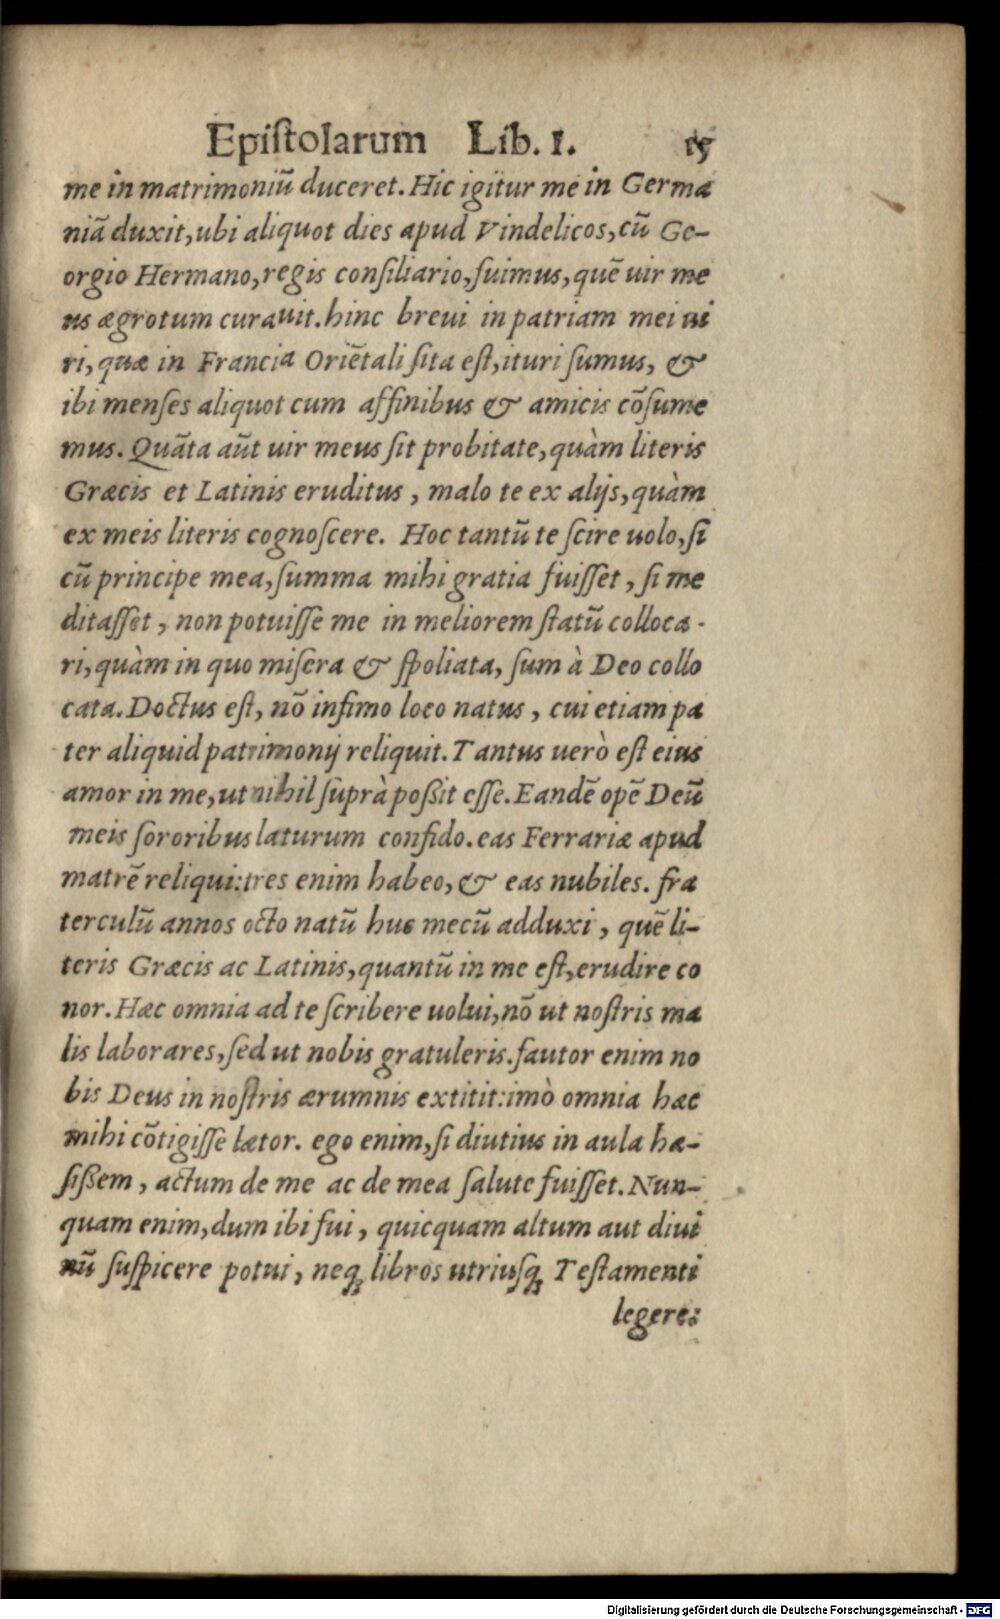 Epiſtolarum Lib. I. 15
me in matrimoniũ duceret. Hic igitur me in Germa
niã duxit, ubi aliquot dies apud Vindelicos, cũ Ge-
orgio Hermano, regis conſiliario, fuimus, quẽ uir me
us ægrotum curauit. hinc breui in patriam mei ui
ri, quæ in Francia Oriẽtali ſita eſt, ituri ſumus, &
ibi menſes aliquot cum affinibus & amicis cõſume
mus. Quãta aũt uir meus ſit probitate, quàm literis
Græcis et Latinis eruditus, malo te ex alijs, quàm
ex meis literis cognoſcere. Hoc tantũ te ſcire uolo, ſi
cũ principe mea, ſumma mihi gratia fuiſſet, ſi me
ditaſſet, non potuiſſe me in meliorem ſtatũ colloca-
ri, quàm in quo miſera & ſpoliata, ſum à Deo collo
cata. Doctus eſt, nõ infimo loco natus, cui etiam pa
ter aliquid patrimonij reliquit. Tantus uerò eſt eius
amor in me, ut nihil ſuprà poßit eſſe. Eandẽ opẽ Deũ
meis ſororibus laturum confido. eas Ferrariæ apud
matrẽ reliqui: tres enim habeo, & eas nubiles. fra
terculũ annos octo natũ huc mecũ adduxi, quẽ li-
teris Græcis ac Latinis, quantũ in me eſt, erudire co
nor. Hæc omnia ad te ſcribere uolui, nõ ut noſtris ma
lis laborares, ſed ut nobis gratuleris. fautor enim no
bis Deus in noſtris ærumnis extitit: imò omnia hæc
mihi cõtigiſſe lætor. ego enim, ſi diutius in aula hæ-
ſißem, actum de me ac de mea ſalute fuiſſet. Nun-
quam enim, dum ibi fui, quicquam altum aut diui
nũ ſuſpicere potui, neqꝫ libros utriuſqꝫ Teſtamenti
legere:
Digitalisierung gefördert durch die Deutsche Forschungsgemeinschaft - DFG